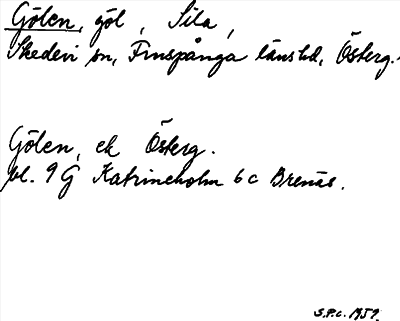 Gölen, göl, Sila,
Skedevi sn, Finspånga länshd, Österg.
Gölen, ek Österg.
bl. 9 G Katrineholm 6 c Brenäs.
S.P.c. 1959.